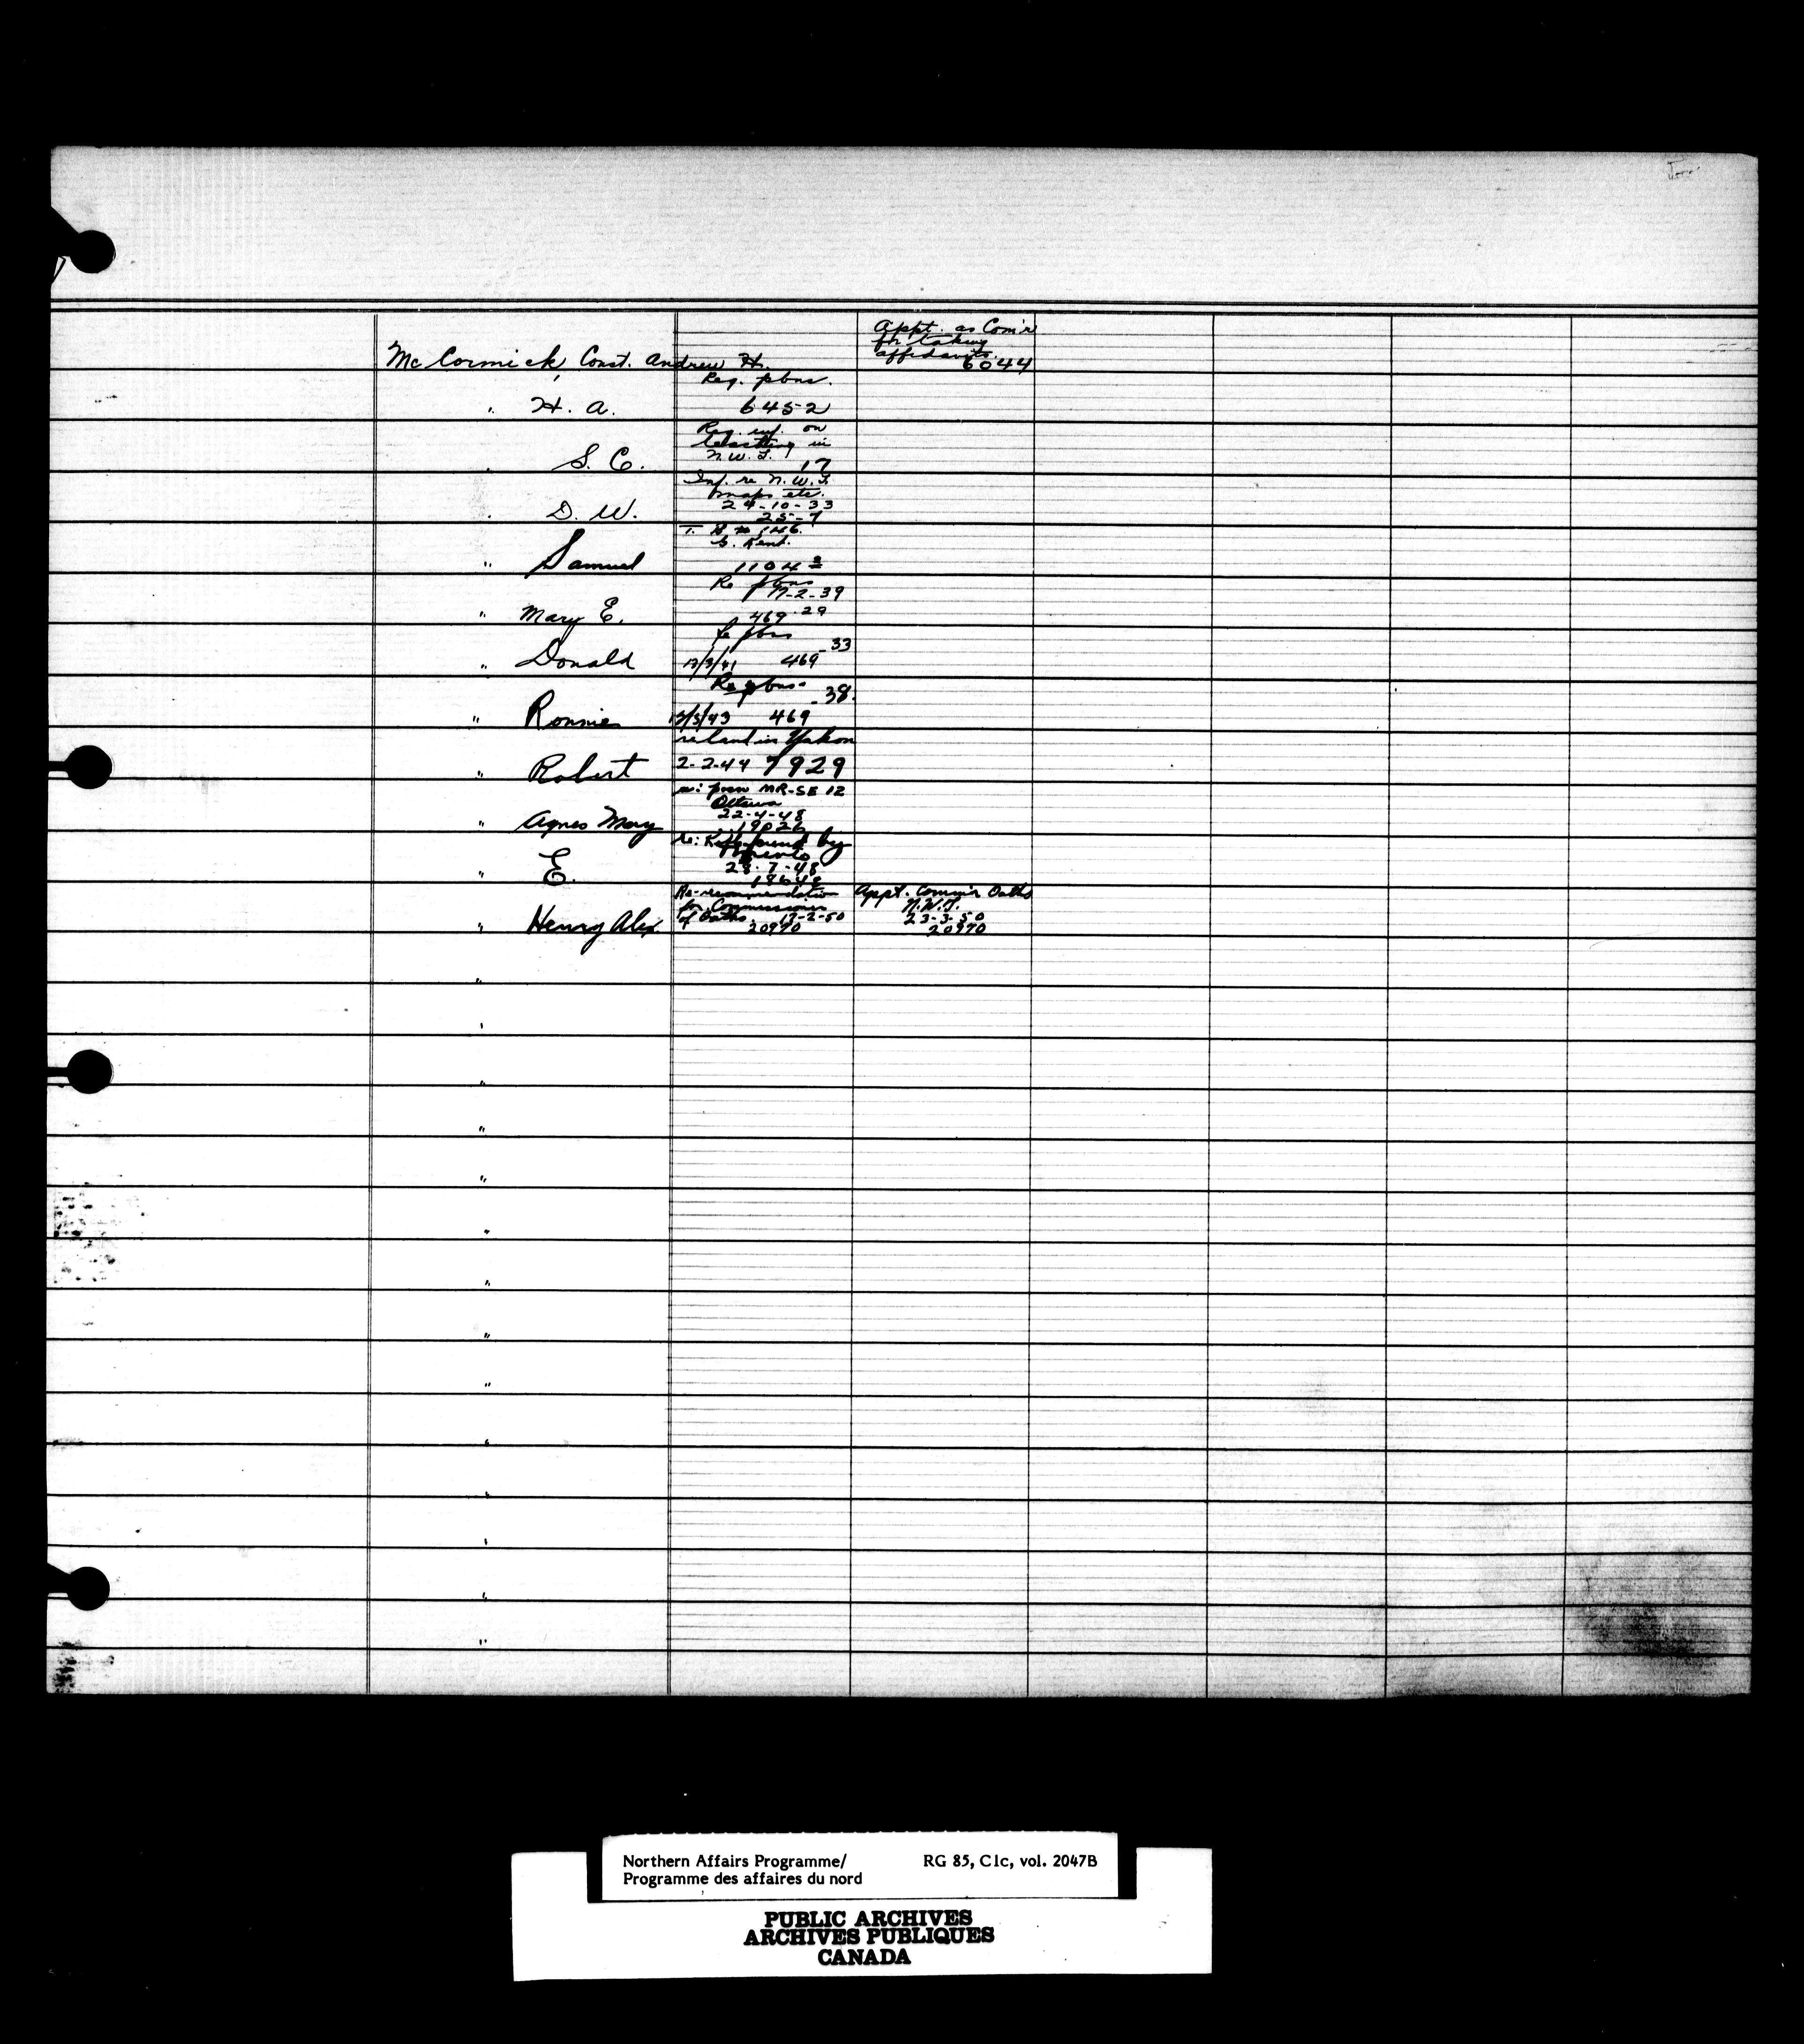 McCormick, Const. Andrew H.
Appt. as Com'r
for taking
affidavits.
6044
" H. A.
Req. pbns.
6452
" S. C.
Req. inf. on
in
N.W.T.
17
" D. W.
Inf. re N.W.T.
maps etc.
24-10-33
25-7
" Samuel
T. H # 146.
S. Kent.
1104
" Mary E.
Re pbns
17-2-39
469-29
" Donald
Re pbns
-33
12/3/41 469
" Ronnie
Re pbns-
-38.
12/3/43 469
" Robert
re land in Yukon
2-2-44 7929
" Agnes Mary
re: posn MR-SE 12
Ottawa
22-4-48
19026
" E.
re: by
Toronto
28-7-48
18648
" Henry Alex
Re-recommendation
for Commissioner
of Oaths. 17-2-50
20970
Appt. Comm'r Oaths
N.W.T.
23-3-50
20970
Northern Affairs Programme/ RG 85, C1c, vol. 2047B
Programme des affaires du nord
PUBLIC ARCHIVES
ARCHIVES PUBLIQUES
CANADA